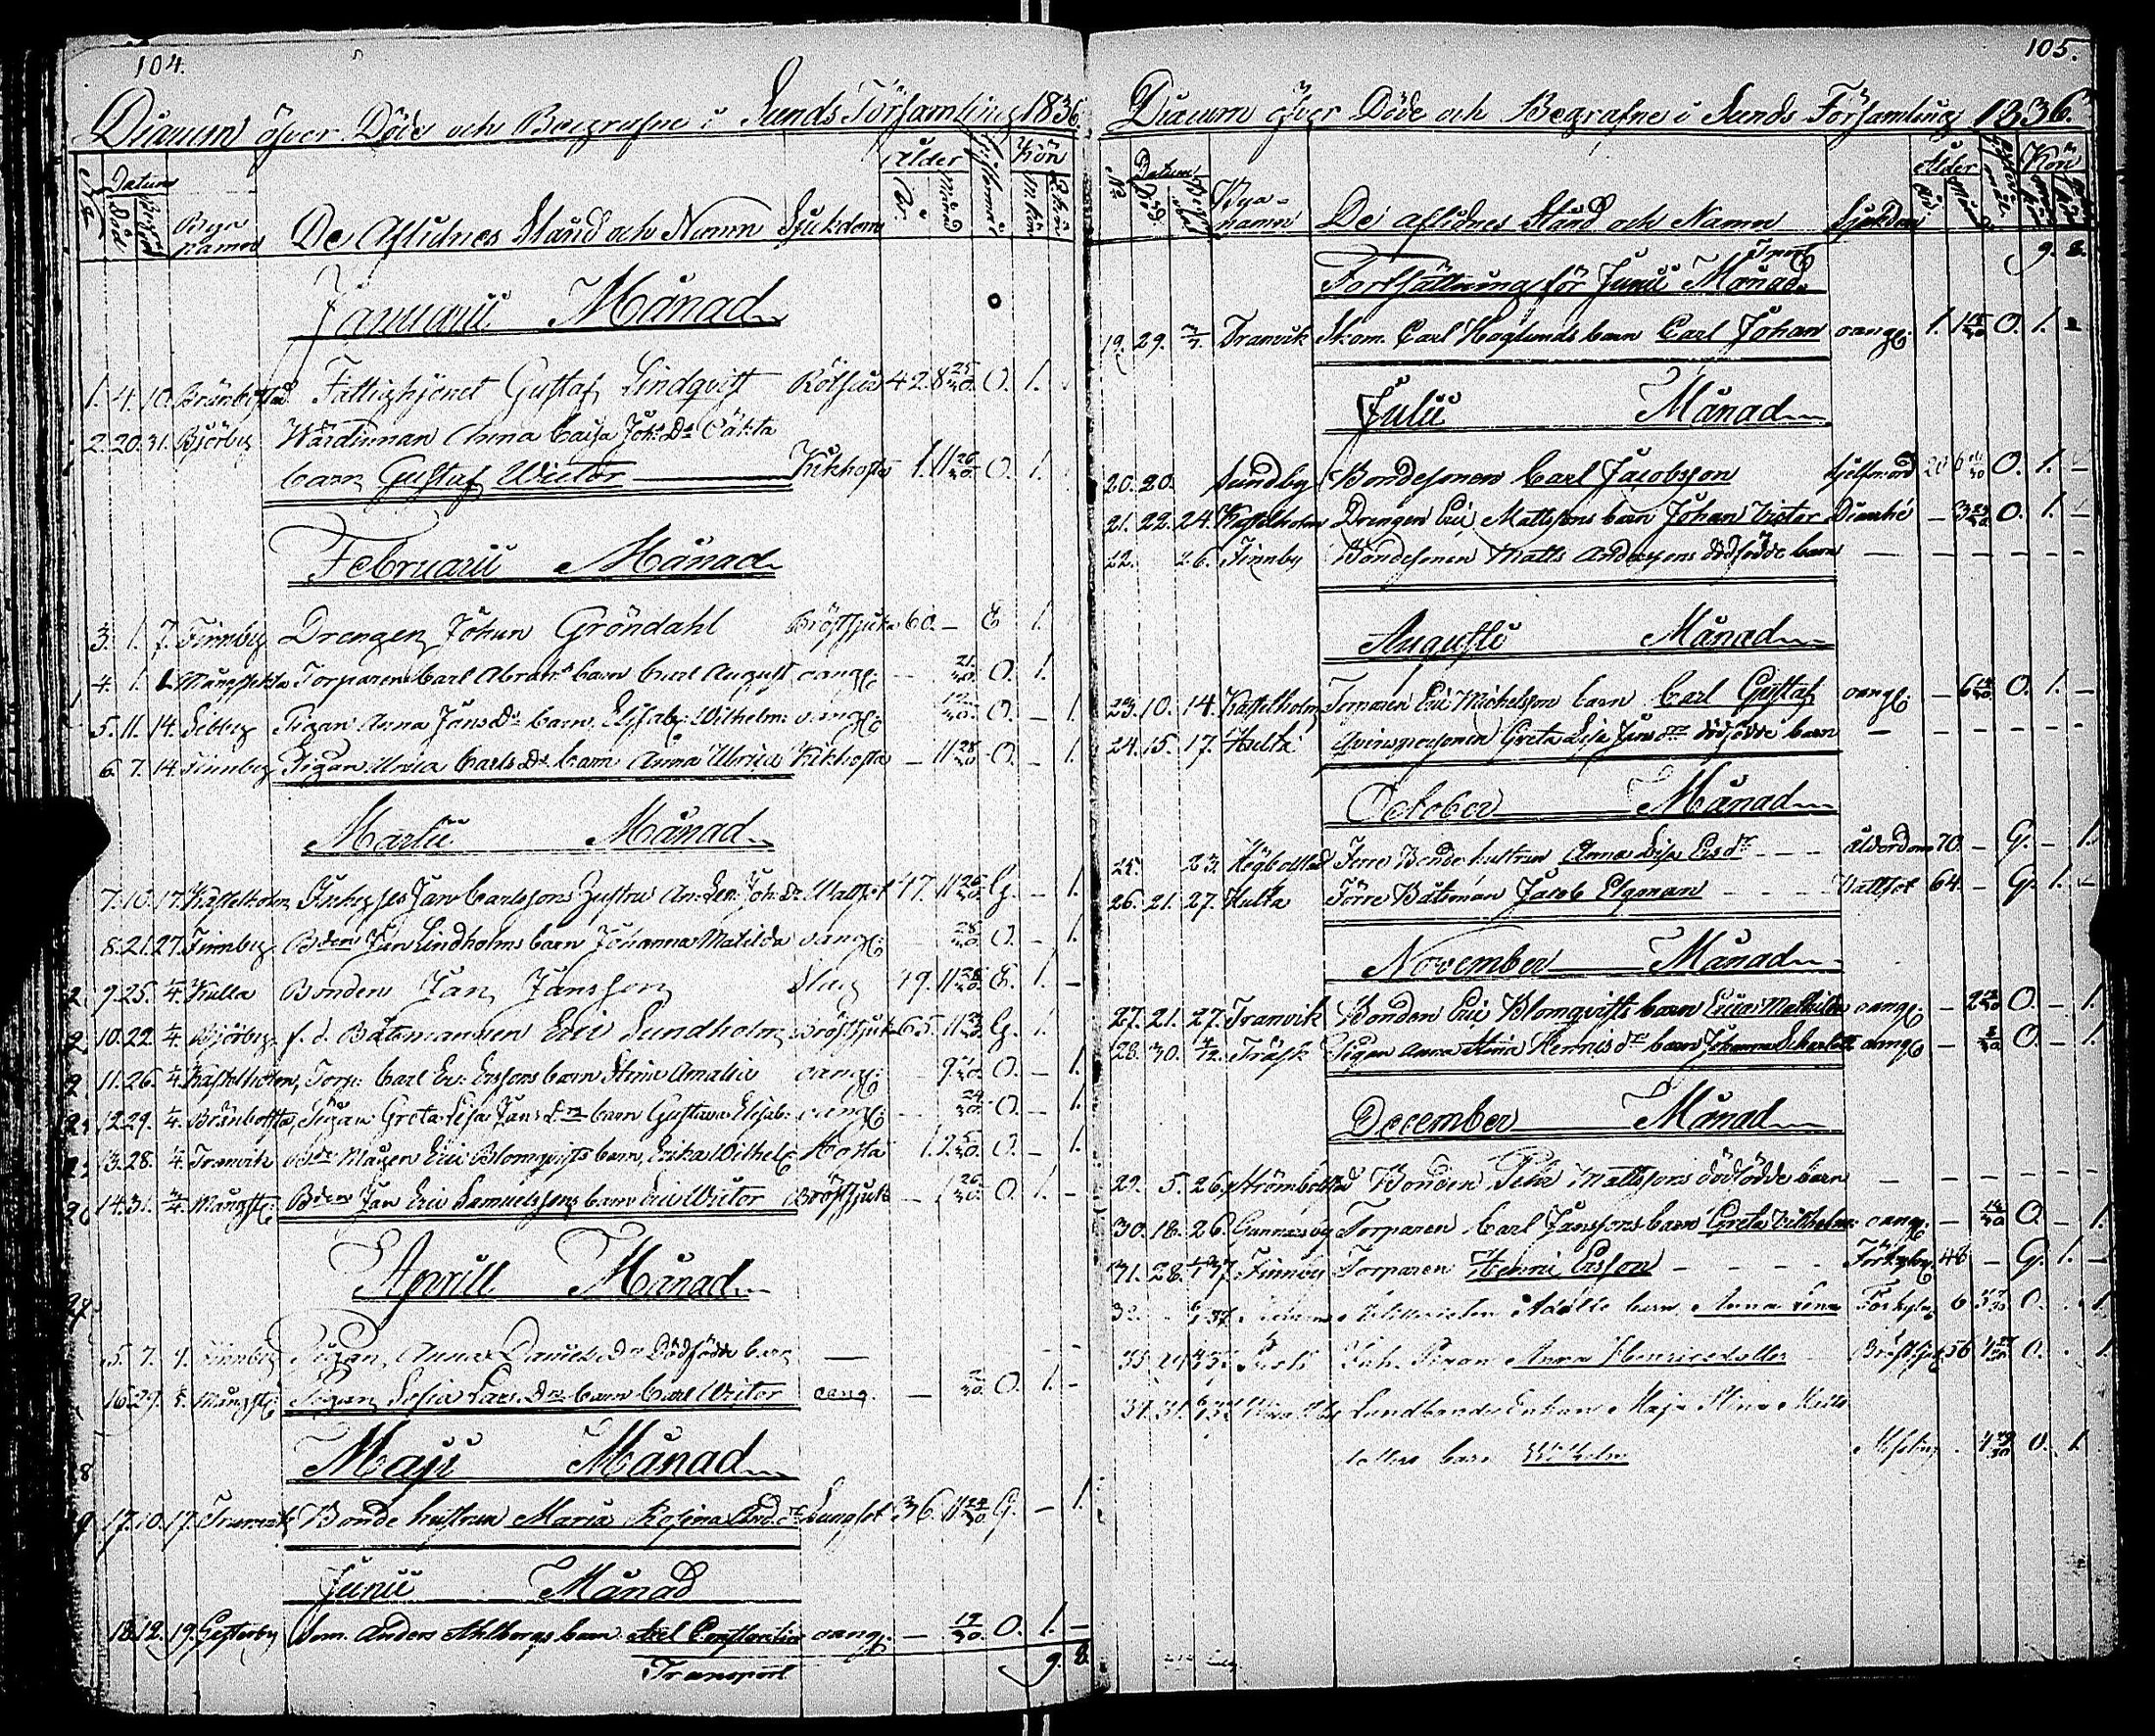 104.
Diarium öfver Döde och Begrafne i Sunds Församling 1836
No Datum Död Begrof. Bya namn De Aflidnes Stånd och Namn Sjukdom Ålder År Månad Kön M.kön Q.kön
Januarii Månad
1. 4. 10. Bränbolstad Fattighjonet Gustaf Lindqvist Rötfeber 42. 8 25/30. O. 1.
2. 20. 31. Björby Wärdinnan Anna Caisa Joh: Dr Oäkta
barn Gustaf Wictor Kikhosta 1. 11 26/30. O. 1.
Februarii Månad
3. 1. 7. Finnby Drengen Johan Gröndahl Bröstsjuka 60. — E 1.
4. 1. Mångstekta Torparen Carl Abrah:s barn Carl August oang: — 21/30. O. 1.
5. 11. 14. Sibby Pigan Anna Jans Dr barn Elisab: Wilhelm: oang: 12/30. O. — 1.
6. 7. 14. Finnby Pigan Ulrica Carls Dr barn Anna Ulrica Kikhosta — 11 28/30 O. — 1.
Martii Månad
7. 10. 17. Kastelholm Jan Carlssons Hustru An: Len: Joh: Dr Wattsot 47. 11 26/30. G. — 1.
8. 21. 27. Finnby Bden Jan Lindholms barn Johanna Matilda oang: 28/30. O. — 1.
9. 25. 4/4. Hulta Bonden Jan Jansson Slag 49. 11 28/30. G. 1. —
10. 22. 4/4. Björby f. d. Båtsmannen Eric Lundholm Bröstsjuk 65. 11 23/30. G. 1.
11. 26. 4/4. Kastelholm, Torp: Carl Er: Erssons barn Stina Amalia oang: — 9 O. — 1.
12. 29. 4. Bränbolsta, Pigan Greta Lisa Jans Dr barn Gustava Elisab: oang: — 24/30. O. — 1.
13. 28. 4. Tranvik Bde Mågen Eric Blomqvists barn, Erika Wilhel: Hosta 1. 2 5/30. O. — 1.
14. 31. 4. Mångst: Bden Jan Eric Samuelssons barn Eric Wictor Bröstsjuk — 1 26/30. O. 1. —
Aprill Månad
15. 7. 4. Finnby Pigan Anna Daniels Dr Dödfödda barn —
16. 29. 5. Mångst: Pigan Sofia Lars Dr barn Carl Wictor oang. — O. 1. —
Maji Månad
17. 10. 17. Tranvik Bonde hustrun Maria Rosina And. dr Lungsot 36. 11 24/30. G. — 1.
Junii Månad
18. 12. 19. Gesterby Som. Anders Ahlbergs barn Axel Constantin oang: — 19/30. O. 1. —
Transport 9. 8.
105.
Diarium öfver Döde och Begrafne i Sunds Församling 1836.
No Datum Död Begrof. Bya-namn De aflidnes Stånd och Namn Sjukdom Ålder År Kön
Transp. 9. 8.
Fortsättning för Junii Månad
19. 29. 3/7. Tranvik Skom. Carl Höglunds barn Carl Johan oang: 1. 1 O. 1. —
Julii Månad
20. 20. Sundby Bondesonen Carl Jacobsson sjelfmord 20 6 O. 1. —
21. 22. 24. Kastelholm Drengen Eric Mattssons barn Johan Victor Diarrhé — 3 O. 1. —
22. 26. Finnby Bondesonen Matts Anderssons dödfödde barn — — — — — —
Augusti Månad
23. 10. 14. Kastelholm Torparen Eric Michelssons barn Carl Gustaf oang: — 6 O. 1. —
24. 15. 17. Hulta Qvinspersonen Greta Lisa Jans dr dödfödde barn — — — — — —
October Månad
25. 23. Högbolstad Förre Bonde hustrun Anna Lisa Ers dr - - - Ålderdom 70. — G. — 1.
26. 21. 27. Hulta Förre Båtsman Jacob Elgman - - - Vattsot 64. — G. 1. —
November Månad
27. 21. 27. Tranvik Bonden Eric Blomqvists barn Erica Mathilda oang: — 2 O. — 1.
28. 30. 4/12. Träsk Pigan Anna Stina Henriks dr barn Johanna Scharlott oang: — O. — 1.
December Månad
29. 5. 26. Strömbolstad Bonden Petter Mattssons dödfödde barn — — — — — —
30. 18. 26. Gunnarsby Torparen Carl Janssons barn Greta Vilhelm: oang: — 14/30 O. — 1.
31. 28. 1/37 Finnby Torparen Henric Ersson - - - Förkyln. 48 — G. 1. —
32. 37 Adolfs barn Anna Lena Förkyln. 6 O. . 1.
33. 37 Pigan Anna Henricsdotter Bröstsjuk 56 4 O. . 1.
34. 31. 37 Enkan Maja Stina Matts
dotters barn Wilhelm . 4 O. 1.